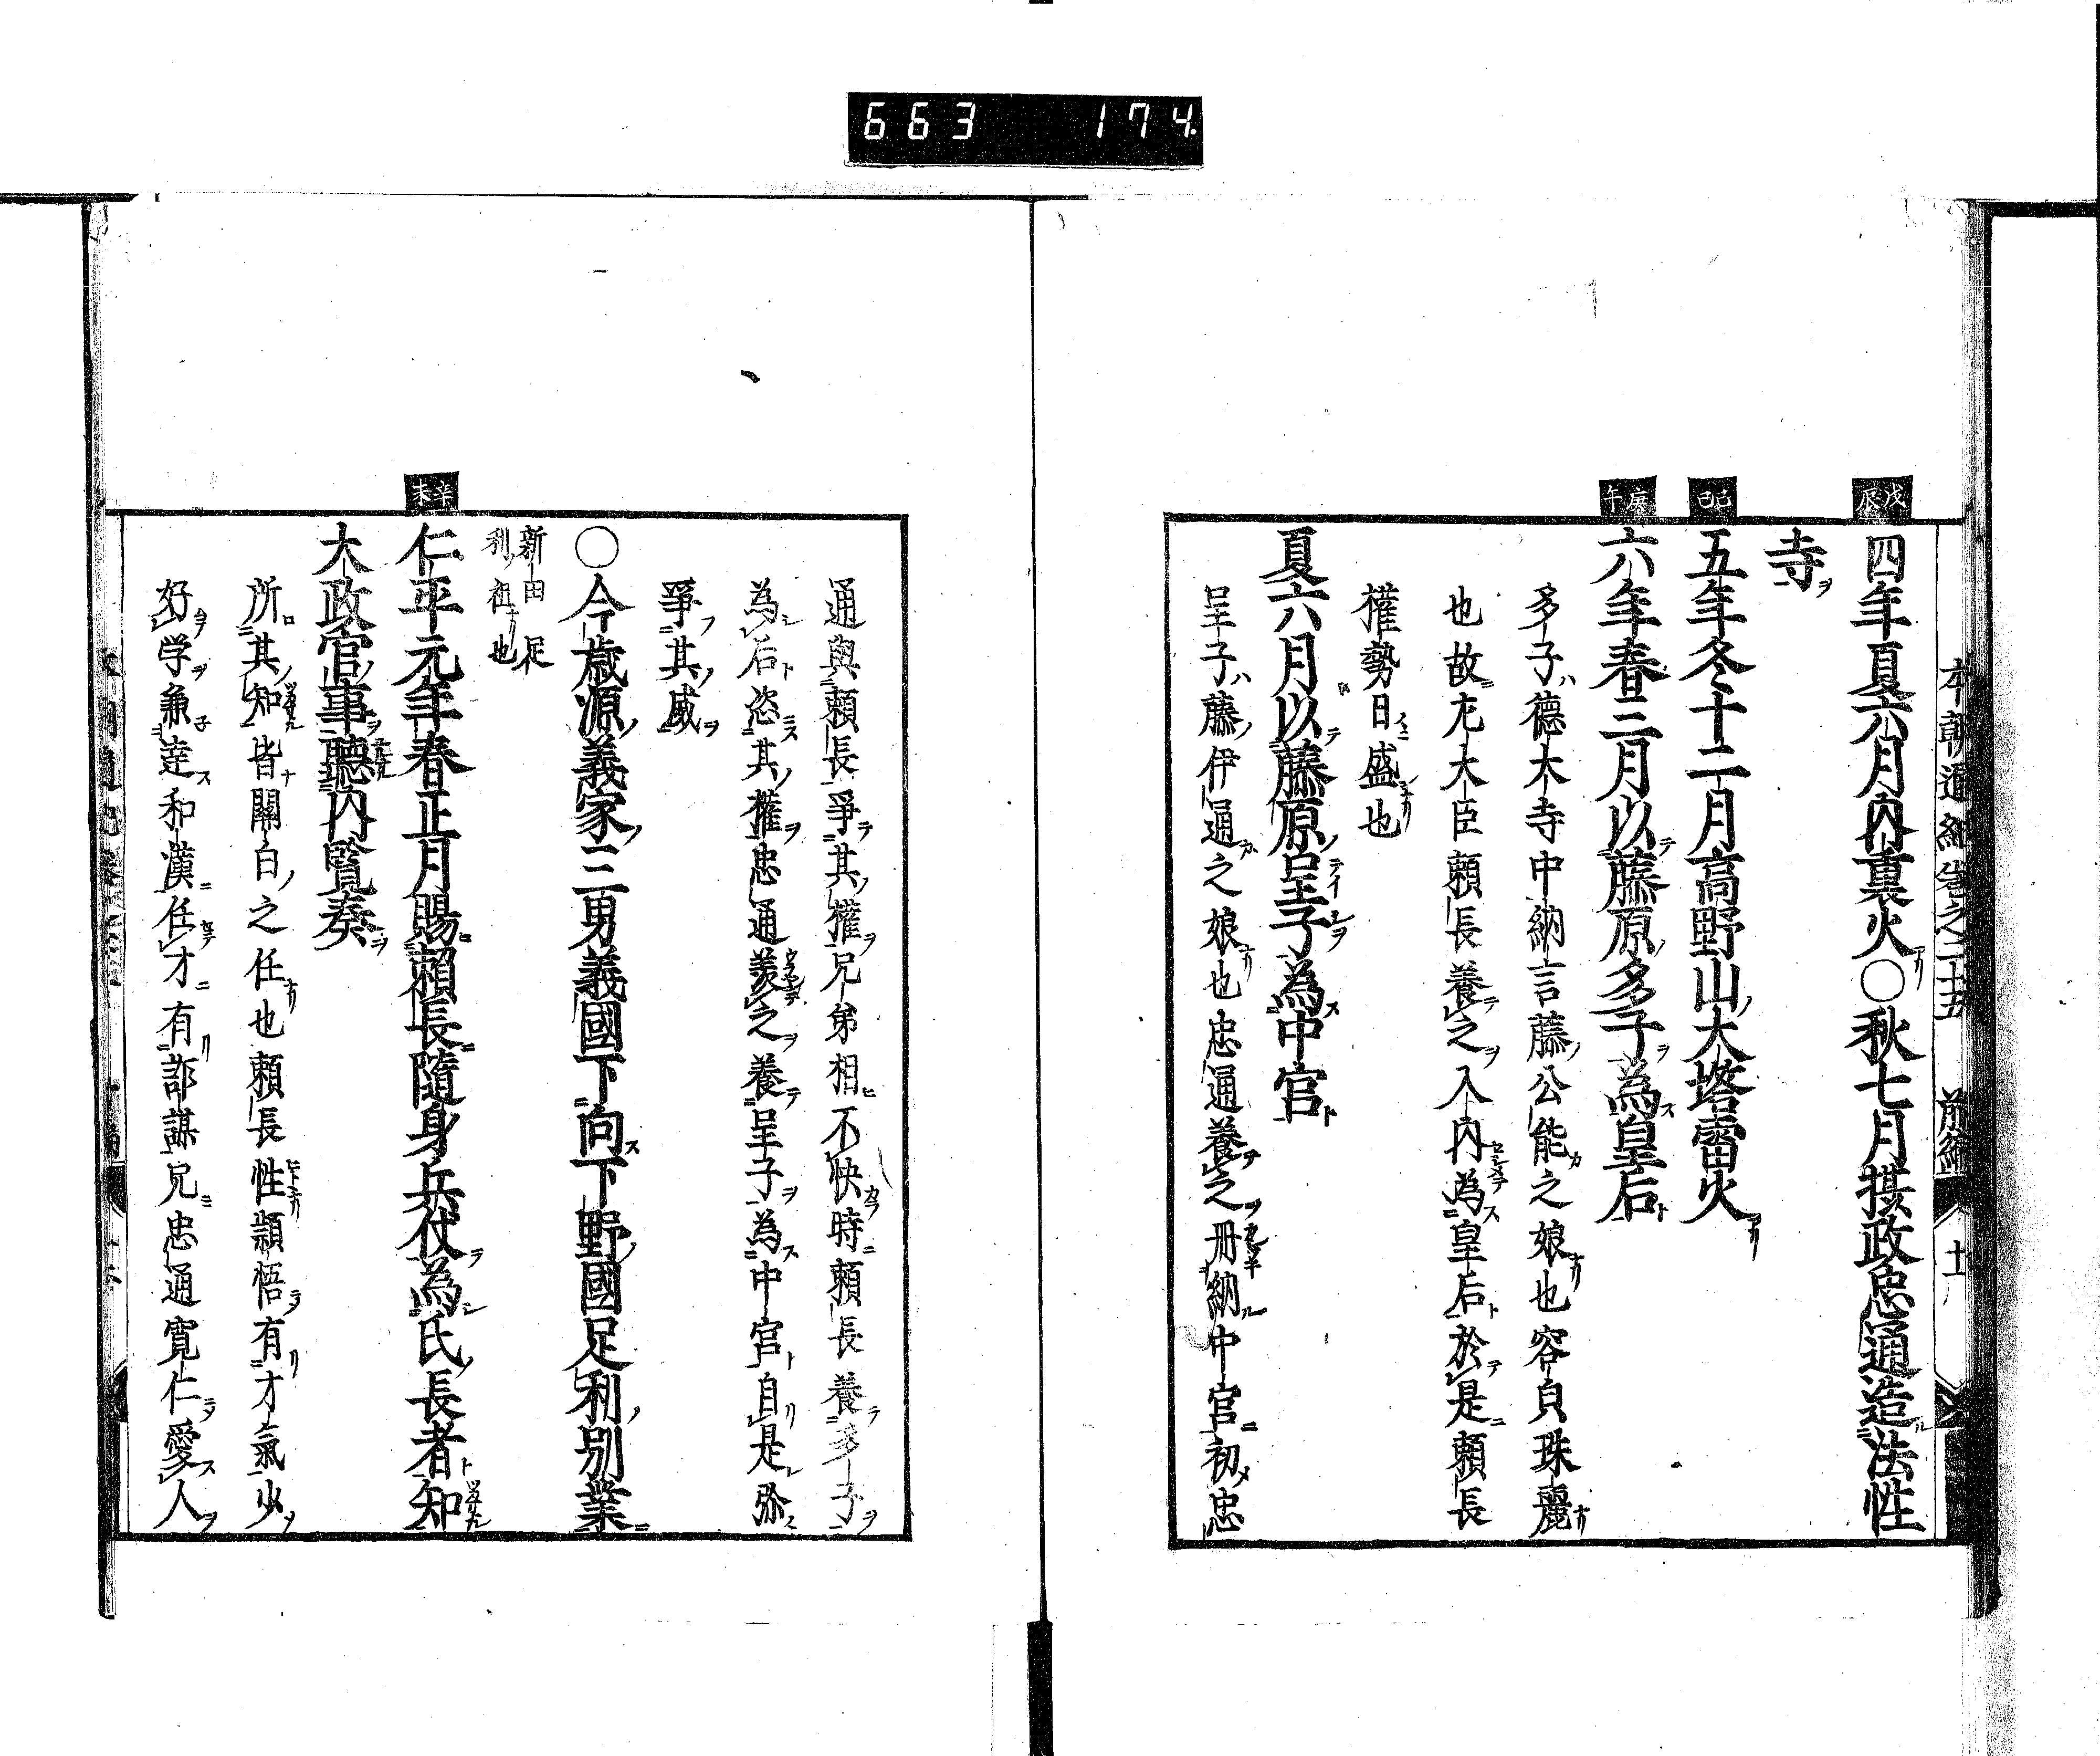 663 174
本朝通紀卷之二十五 前編
戊辰
四年夏六月内裏火○秋七月摂政忠通造法性
寺
己巳
五年冬十二月高野山大塔雷火
庚午
六年春三月以藤原多子為皇后
多子德大寺中納言藤公能之娘也容皃珠麗
也故左大臣頼長養之入内為皇后於是頼長
權勢日盛也
夏六月以藤原呈子為中宮
呈子藤伊通之娘也忠通養之冊納中宮初忠
通與頼長爭其權兄弟相不快時頼長養多子
為后恣其權忠通羨之養呈子為中宮自是弥
爭其威
○今歳源義家三男義國下向下野國足利別業
新田足
利祖也
辛未
仁平元年春正月賜頼長隨身兵仗為氏長者知
太政官事聽内覧奏
所其知皆關白之任也頼長性頴悟有才氣少
好学兼達和漢任才有詐謀兄忠通寛仁愛人